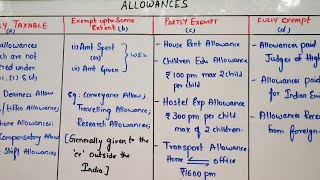 ALLOWANCES
LY TAXABLE
(a)
allowances
ich are not
ered under
, (c) & (d)
Dearness Allow
/tiffin Allowance
hone Allowance;
Compensatory Allow
Shift Allowances
Exempt upto Some
Extent (b)
(i) Amt Spent
(or)
(ii) Amt Given
WEL
Eg: conveyance Allow;
Travelling Allowance;
Research Allowances;
[Generally given to the
'ee' outside the
India]
PARTLY EXEMPT
(c)
- House Rent Allowance
- Children Edu Allowance
₹100 pm max 2 child
per child
- Hostel Exp Allowance
₹300 pm per child
max of 2 children.
- Transport Allowance
Home office
₹1600 pm
FULLY Exempt
(d)
Allowances paid
Judges of High
Allowances paid
for Indian Em
Allowances Rece
from foreign